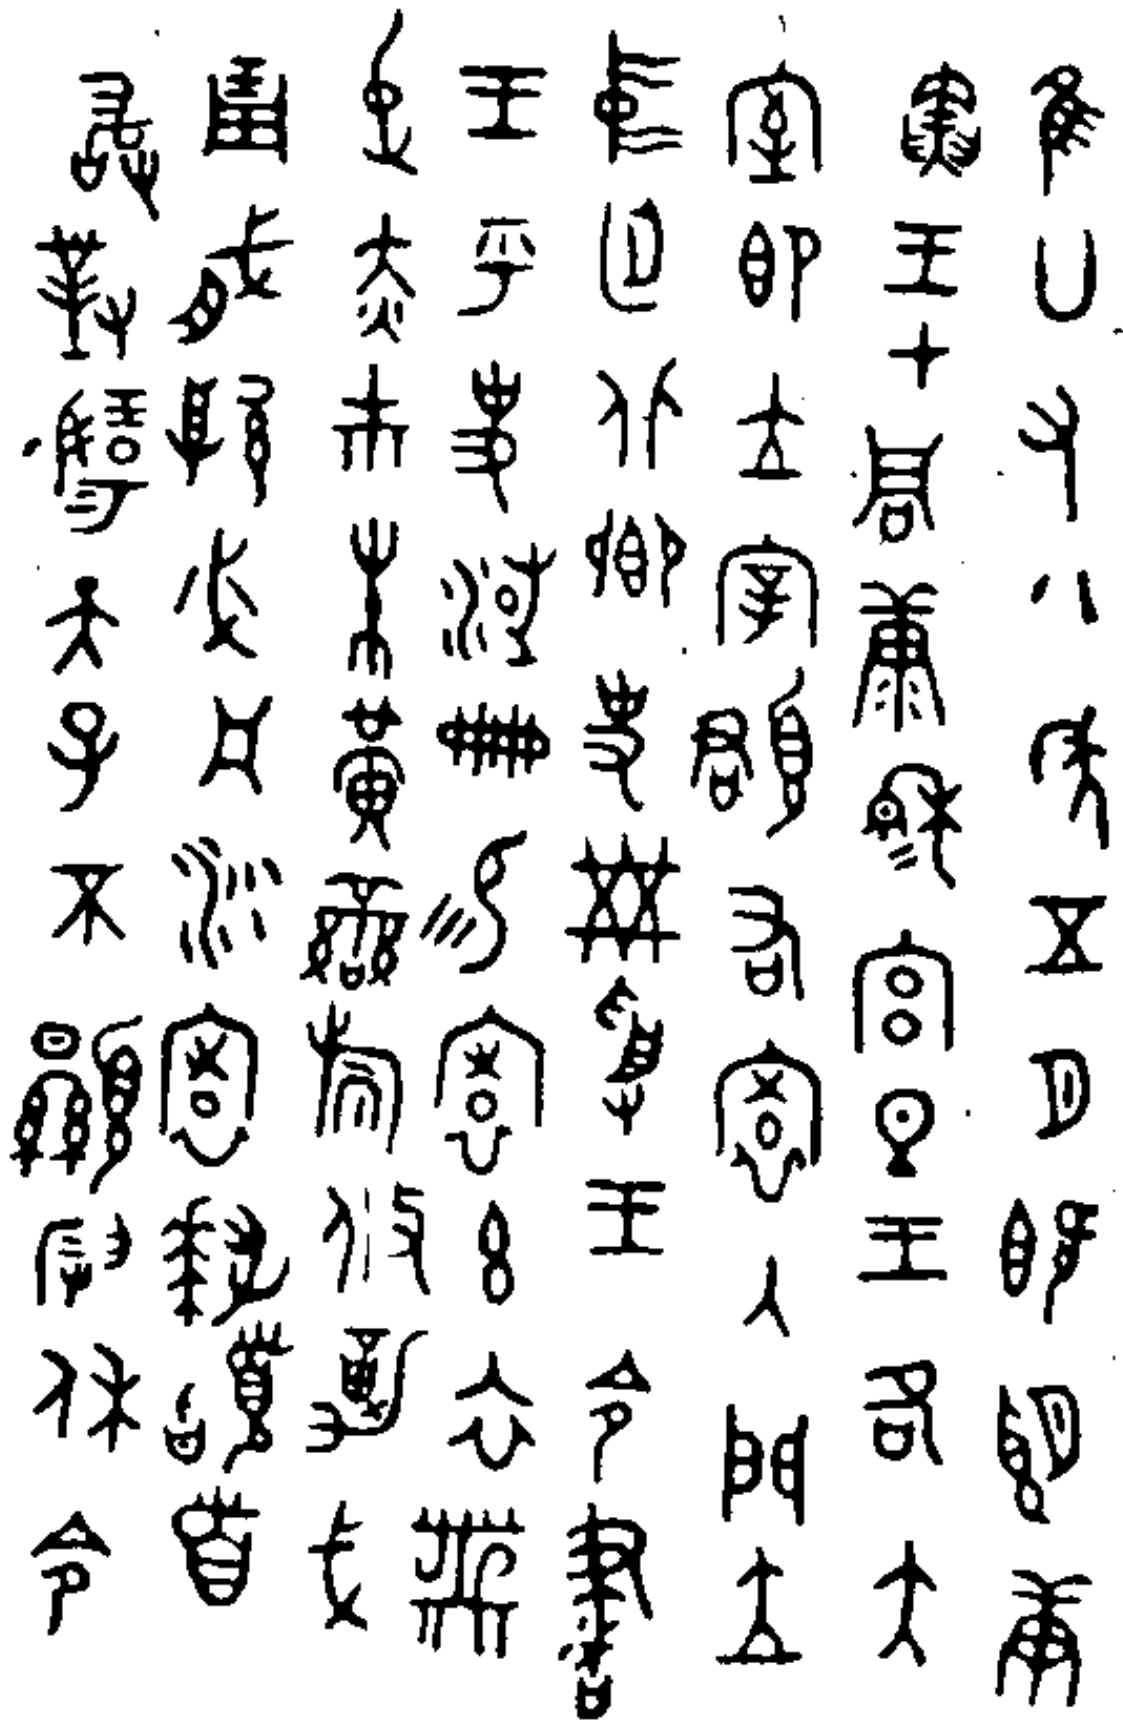 隹廿又八年五月既望庚
寅王才周康穆宮旦王各大
室即立宰頵右寰入門立
中廷北鄉史黹受王令書
王乎史減冊易寰玄衣黹
屯赤巿朱黃鑾旂攸勒戈
琱戟厚必彤沙寰拜稽首
敢對揚天子不顯叚休令